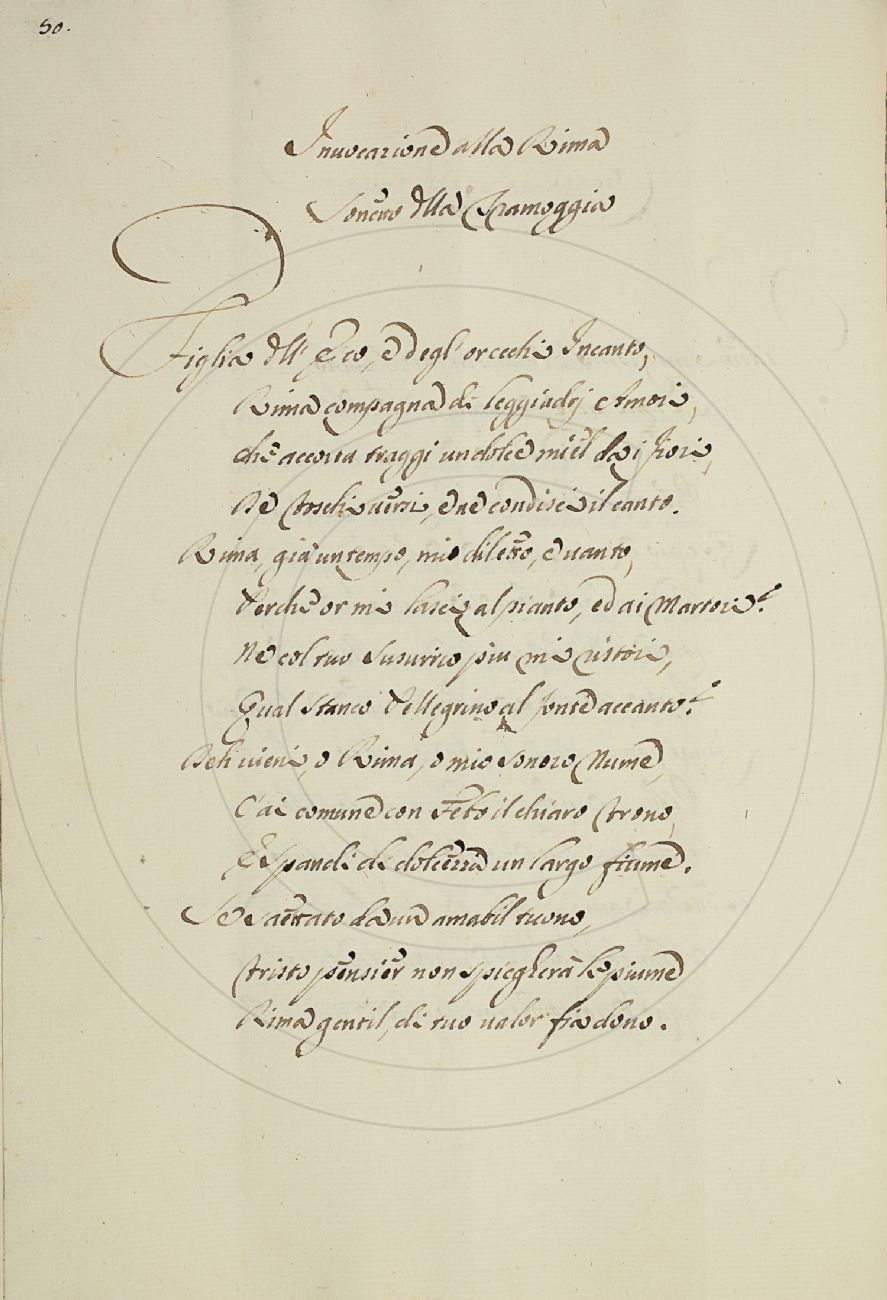 50.
Invocazione alla Rima
Sonetto della Tramoggia
Figlia dell' Eco, e degl' orecchi Incanto,
Rima compagna di leggiadri Amori,
che accorta traggi un dolce miel dai fiori
De Toschi versi, e ne condisci il canto.
Rima, già un tempo, mio diletto, e vanto,
Perche or mi lasci al pianto, ed ai Martori?
Ne col tuo Susurrio piu mi ristori,
Qual Stanco Pellegrino al fonte accanto?
Deh vieni, o Rima, o mio sonoro Nume,
C'ai comune con Febo il chiaro Trono,
E Spandi di dolcezza un largo fiume.
Se Saettato da un amabil tuono,
Tristo pensier non spiegherà le piume
Rima gentil, di tuo valor fia dono.